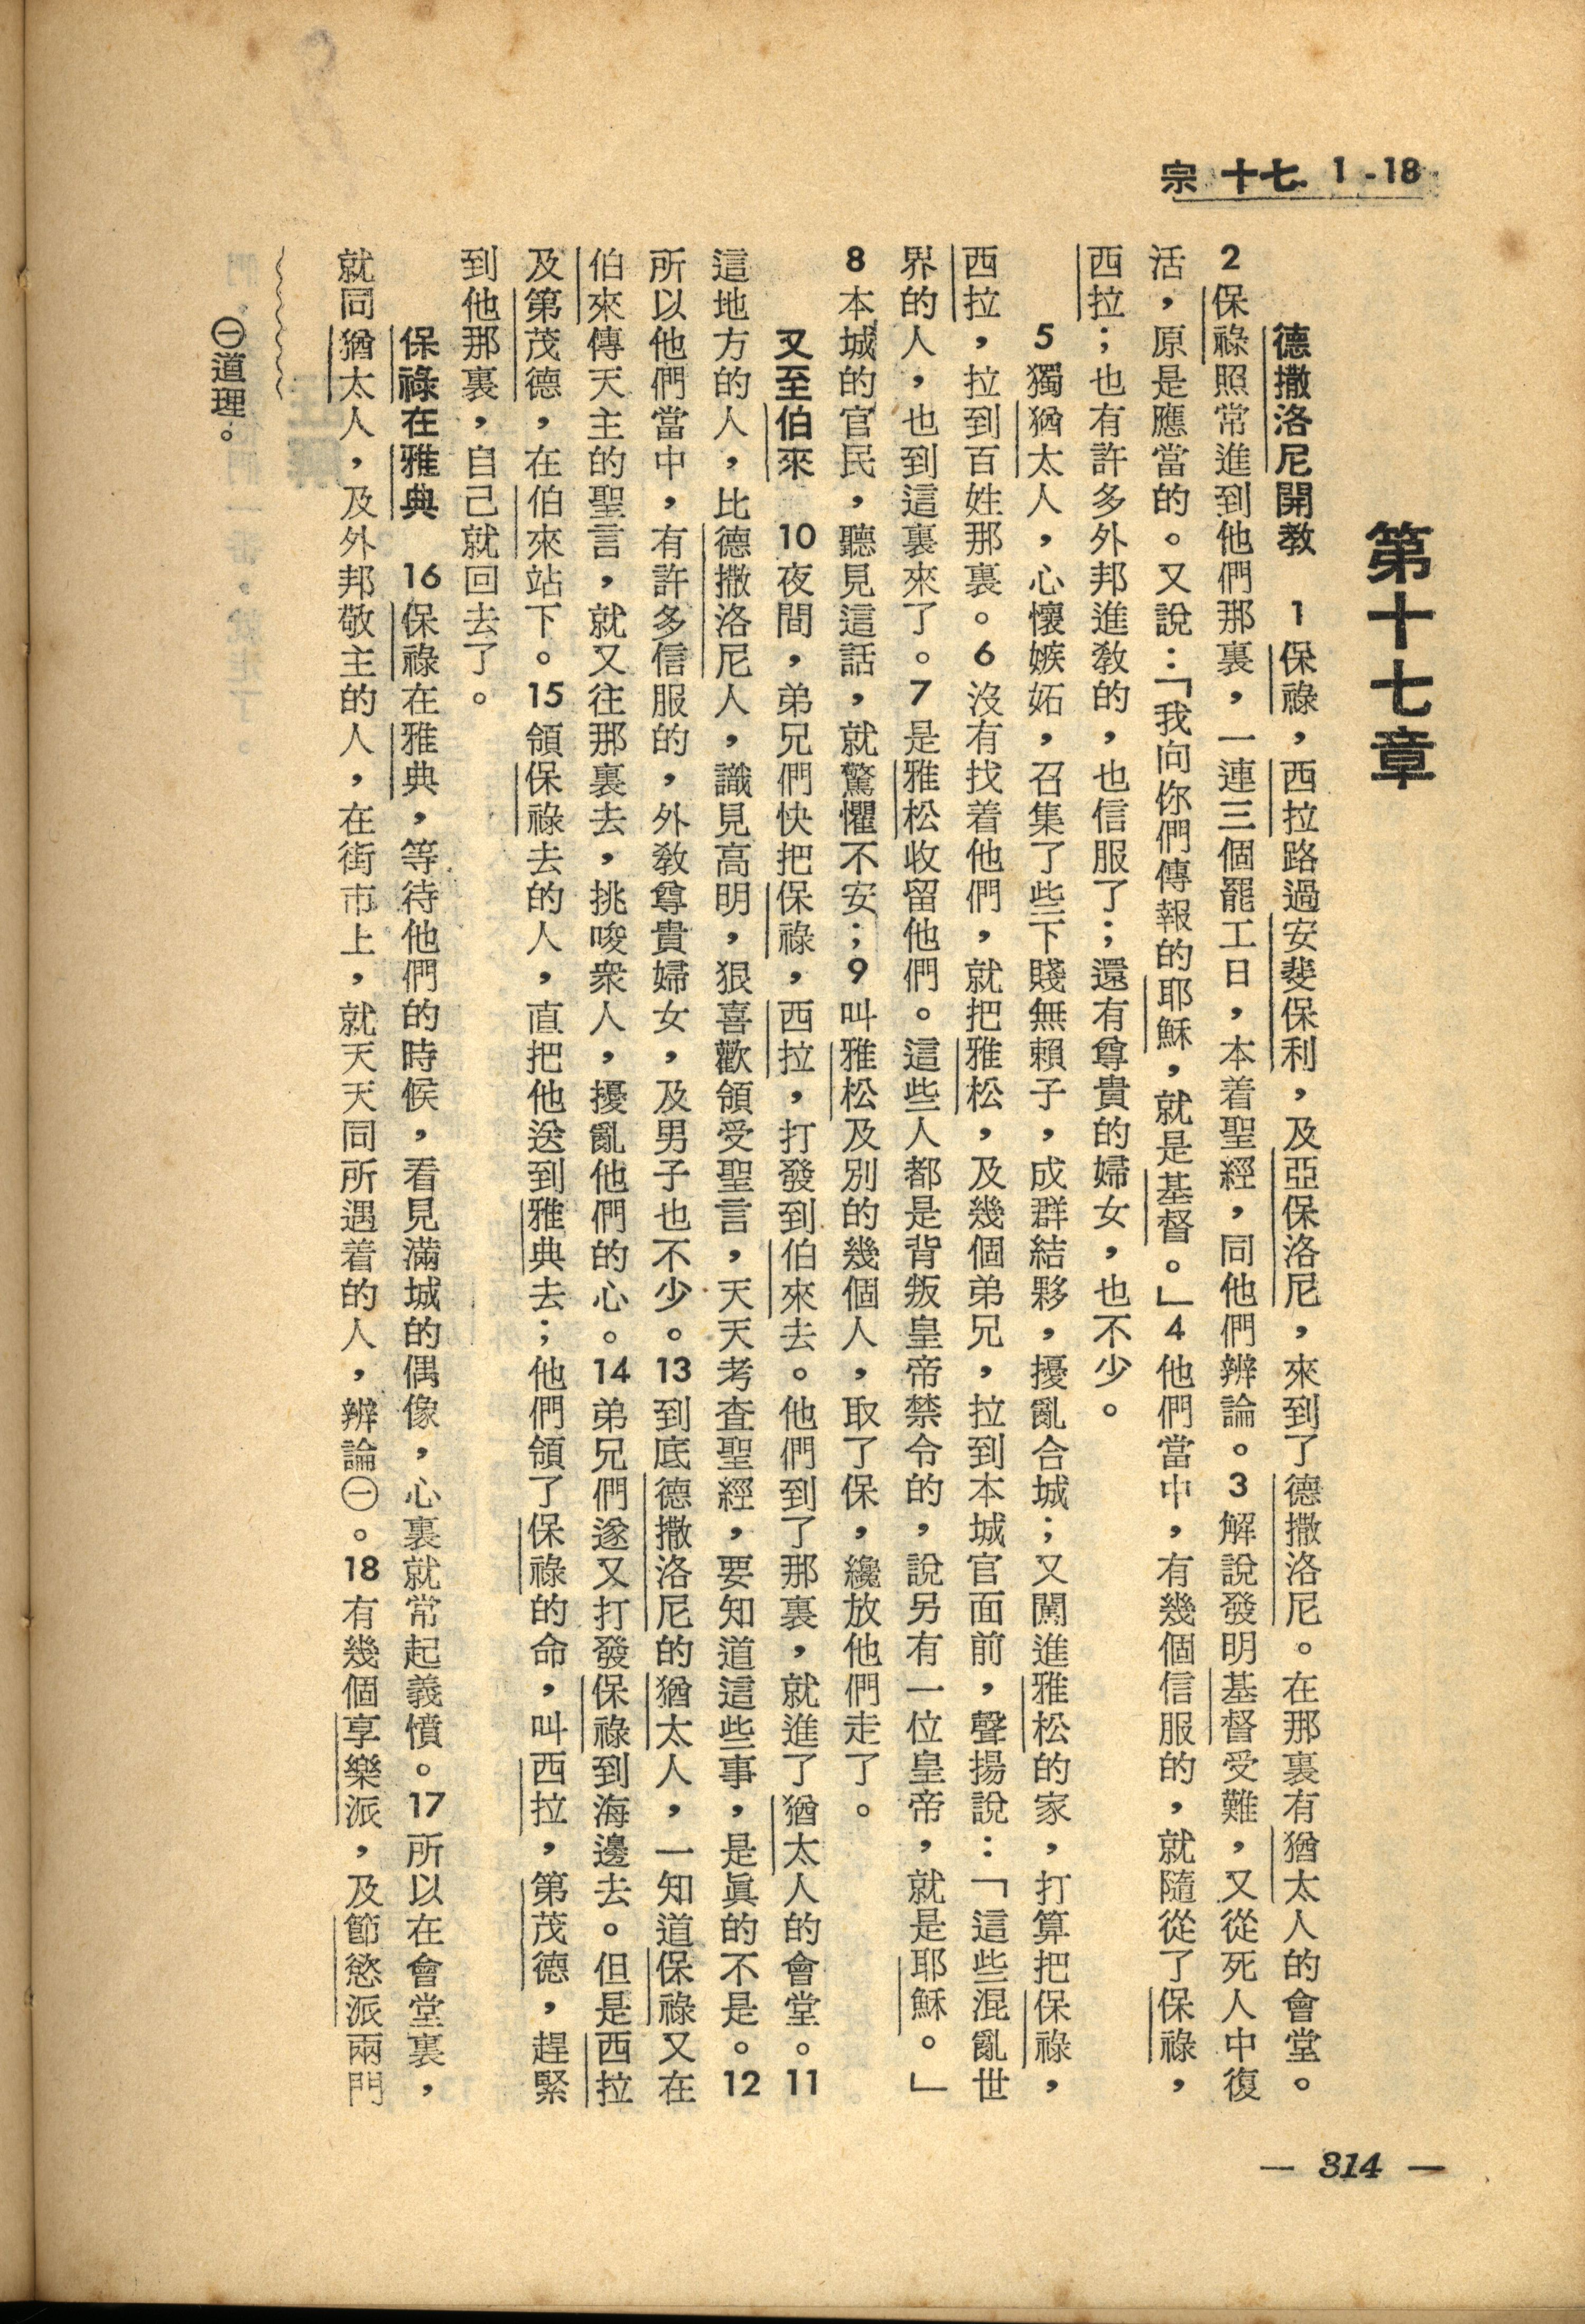 宗 十七. 1-18
第十七章
德撒洛尼開教　1 保祿，西拉路過安斐保利，及亞保洛尼，來到了德撒洛尼。在那裏有猶太人的會堂。
2 保祿照常進到他們那裏，一連三個罷工日，本着聖經，同他們辨論。3 解說發明基督受難，又從死人中復
活，原是應當的。又說：「我向你們傳報的耶穌，就是基督。」4 他們當中，有幾個信服的，就隨從了保祿，
西拉；也有許多外邦進教的，也信服了；還有尊貴的婦女，也不少。
5 獨猶太人，心懷嫉妬，召集了些下賤無賴子，成群結夥，擾亂合城；又闖進雅松的家，打算把保祿，
西拉，拉到百姓那裏。6 沒有找着他們，就把雅松，及幾個弟兄，拉到本城官面前，聲揚說：「這些混亂世
界的人，也到這裏來了。7 是雅松收留他們。這些人都是背叛皇帝禁令的，說另有一位皇帝，就是耶穌。」
8 本城的官民，聽見這話，就驚懼不安；9 叫雅松及別的幾個人，取了保，纔放他們走了。
又至伯來　10 夜間，弟兄們快把保祿，西拉，打發到伯來去。他們到了那裏，就進了猶太人的會堂。11
這地方的人，比德撒洛尼人，識見高明，狠喜歡領受聖言，天天考查聖經，要知道這些事，是眞的不是。12
所以他們當中，有許多信服的，外教尊貴婦女，及男子也不少。13 到底德撒洛尼的猶太人，一知道保祿又在
伯來傳天主的聖言，就又往那裏去，挑唆衆人，擾亂他們的心。14 弟兄們遂又打發保祿到海邊去。但是西拉
及第茂德，在伯來站下。15 領保祿去的人，直把他送到雅典去；他們領了保祿的命，叫西拉，第茂德，趕緊
到他那裏，自己就回去了。
保祿在雅典　16 保祿在雅典，等待他們的時候，看見滿城的偶像，心裏就常起義憤。17 所以在會堂裏，
就同猶太人，及外邦敬主的人，在街市上，就天天同所遇着的人，辨論㊀。18 有幾個享樂派，及節慾派兩門
㊀道理。
— 314 —